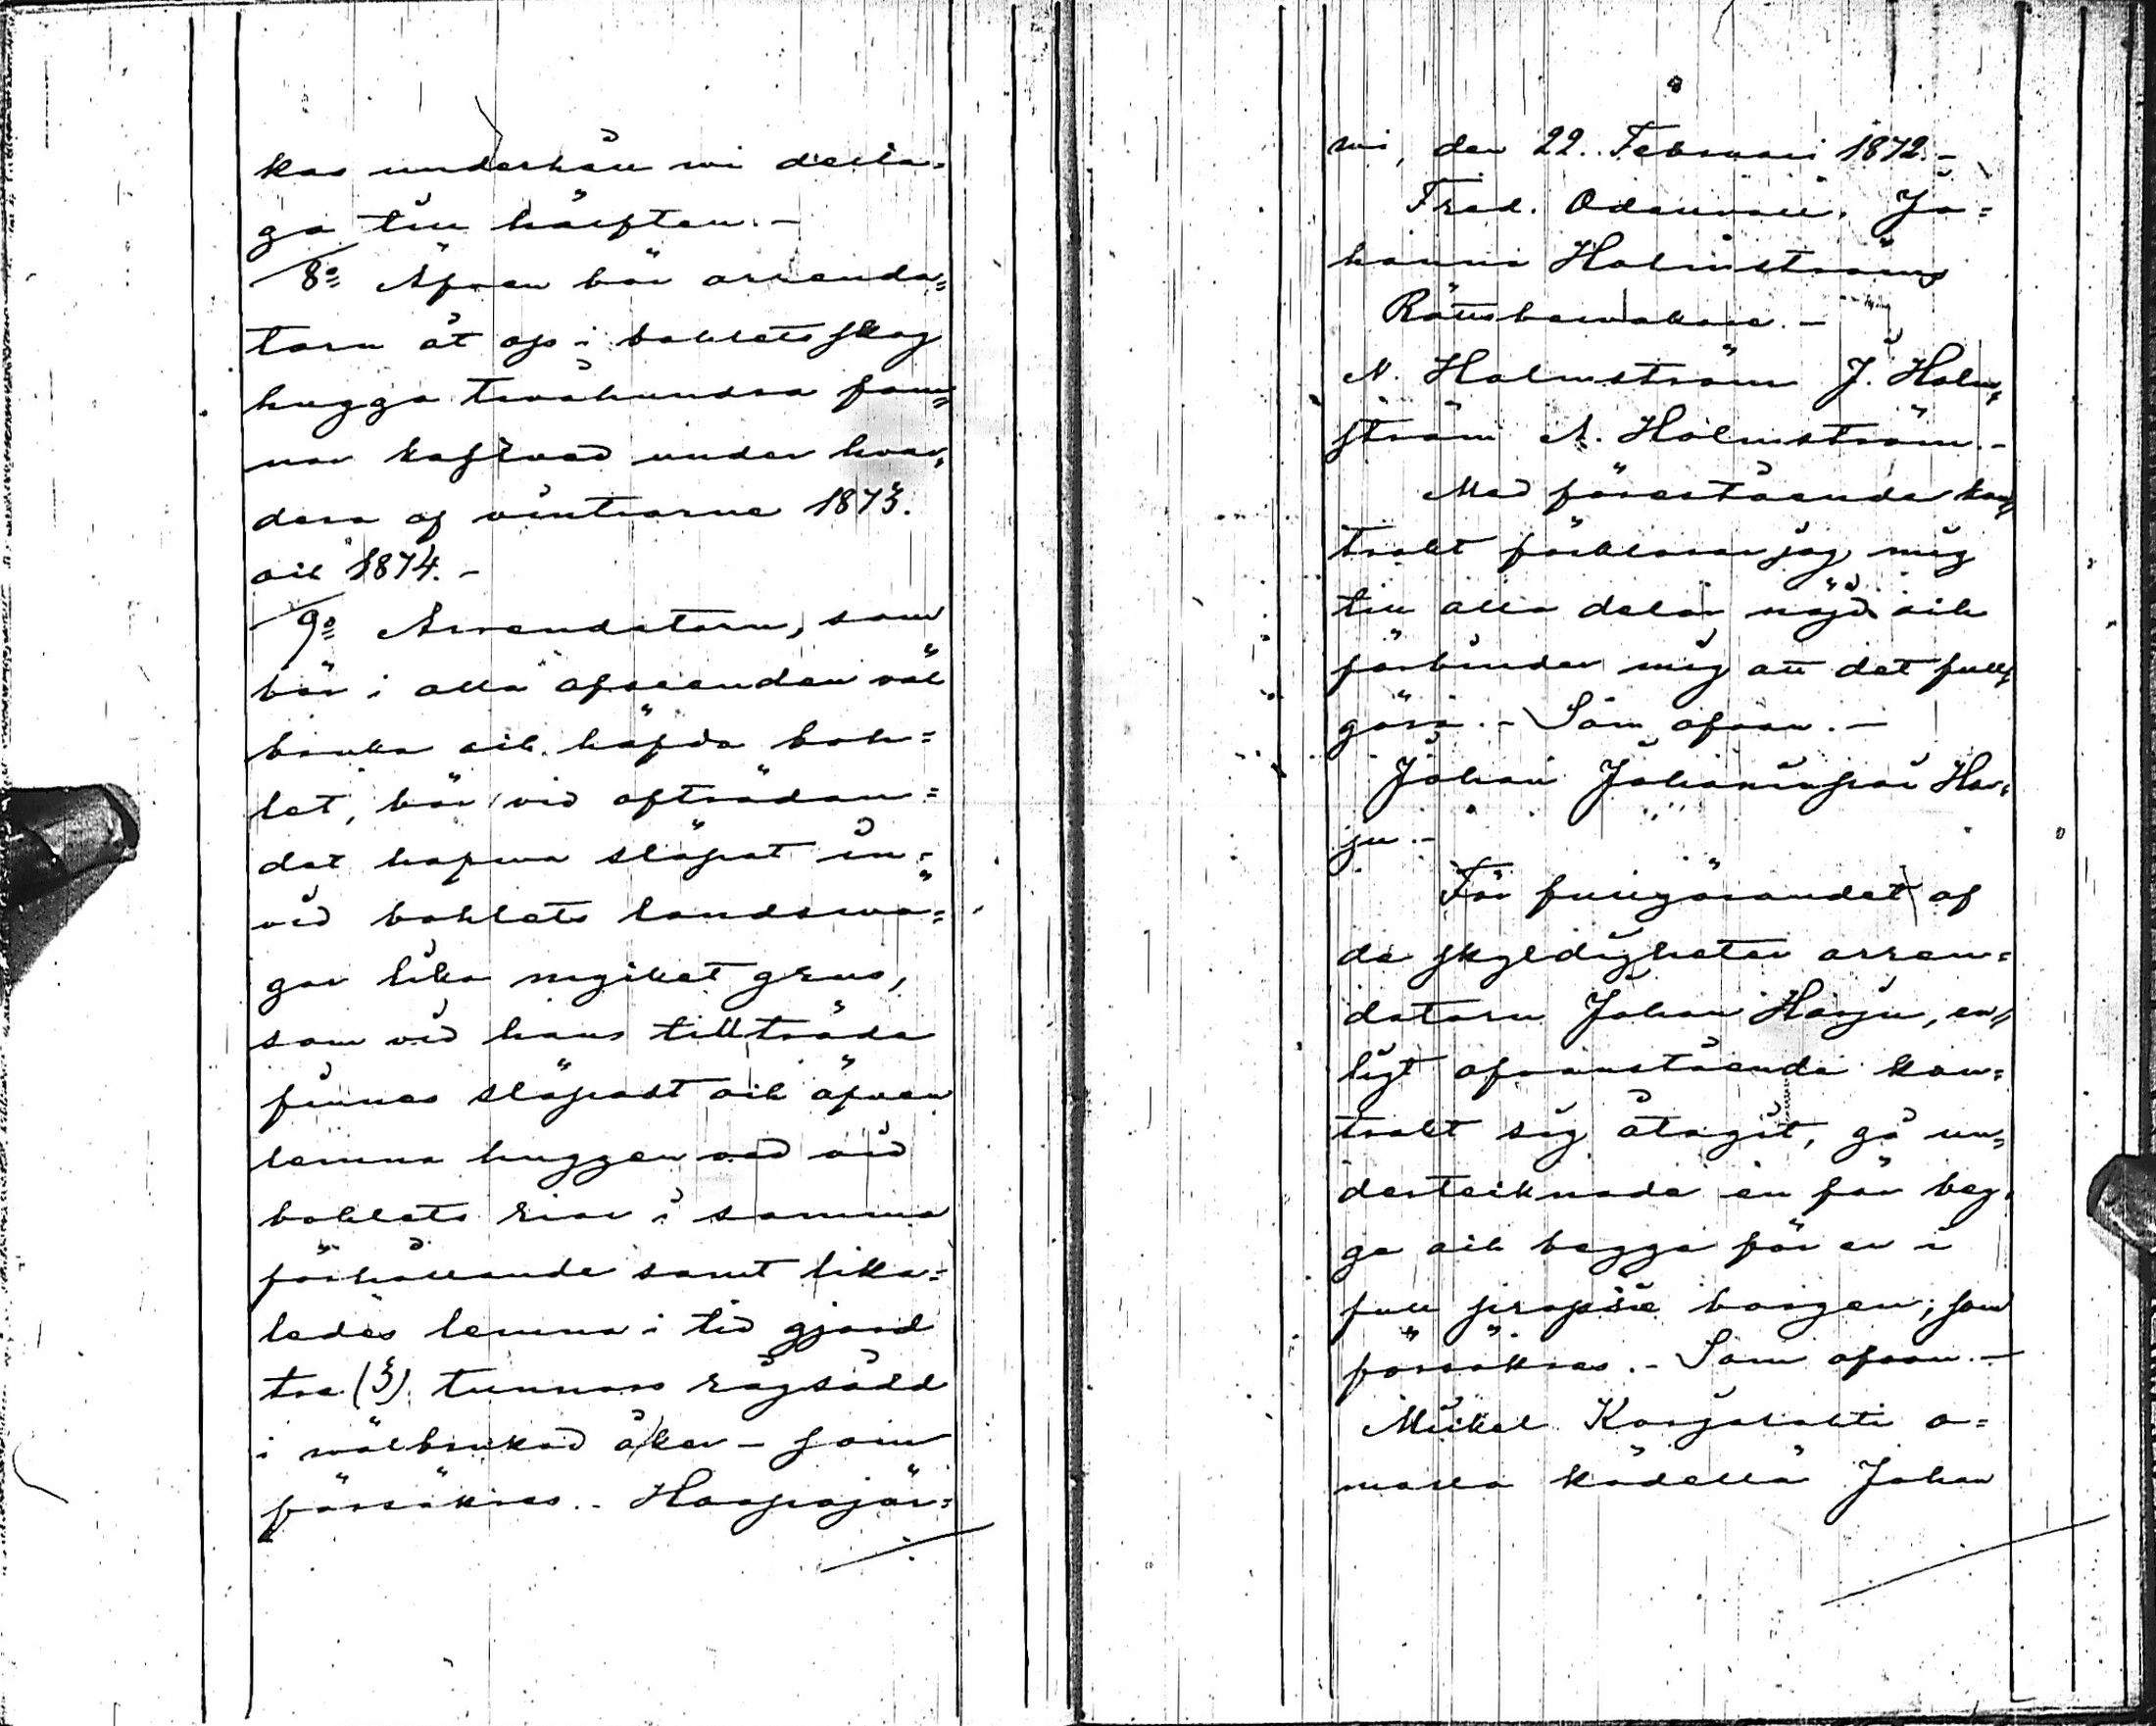 kas underhåll wi delta=
ga till hälften. –
8:o Äfven bör arrenda=
torn åt oss i bohlets skog
hugga tvåhundra fam=
nar kastved under hvar=
dera af vintrarne 1873.
och 1874. –
9:o Arrendatorn, som
bör i alla afseenden väl
bruka och häfda boh=
let, bör vid afträdan=
det hafva släpat in=
vid bohlets landsvä=
gar lika mycket grus,
som vid hans tillträde
finnes släpadt och äfven
lemna huggen ved vid
bohlets rior i samma
förhållande samt lika=
ledes lemna i tid gjord
tre (3) tunnors rågsådd
i wälbrukad åker – som
försäkras. – Haapajär=
wi, den 22. Februari 1872. –
Fred. Odenvall. Jo=
hanna Holmströms
Rättsbevakare. –
N. Holmström J. Holm=
ström A. Holmström. –
Med förestående kon=
trakt förklarar jag mig
till alla delar nöjd och
förbinder mig att det full=
göra. – Som ofvan. –
Johan Johansson Har=
ju. –
För fullgörandet af
de skyldigheter arren=
datorn Johan Harju, en=
ligt ofvanstående kon=
trakt sig åtagit, gå un=
dertecknade en för beg=
ge och begge för en i
full proprie borgen; som
försäkras. – Som ofvan. –
Mickel Karjalahti o=
malla kädellä Johan